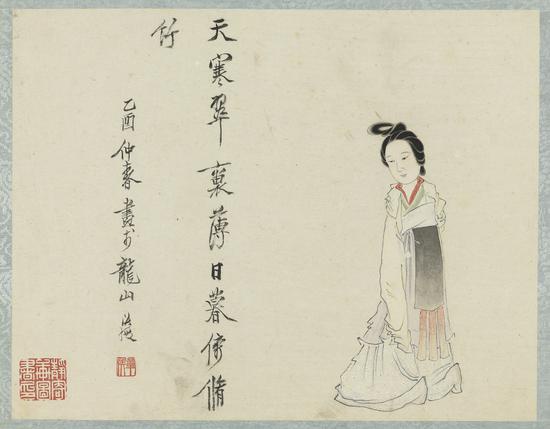 天寒翠褏薄日暮倚脩
竹
乙酉仲春畫於龍山